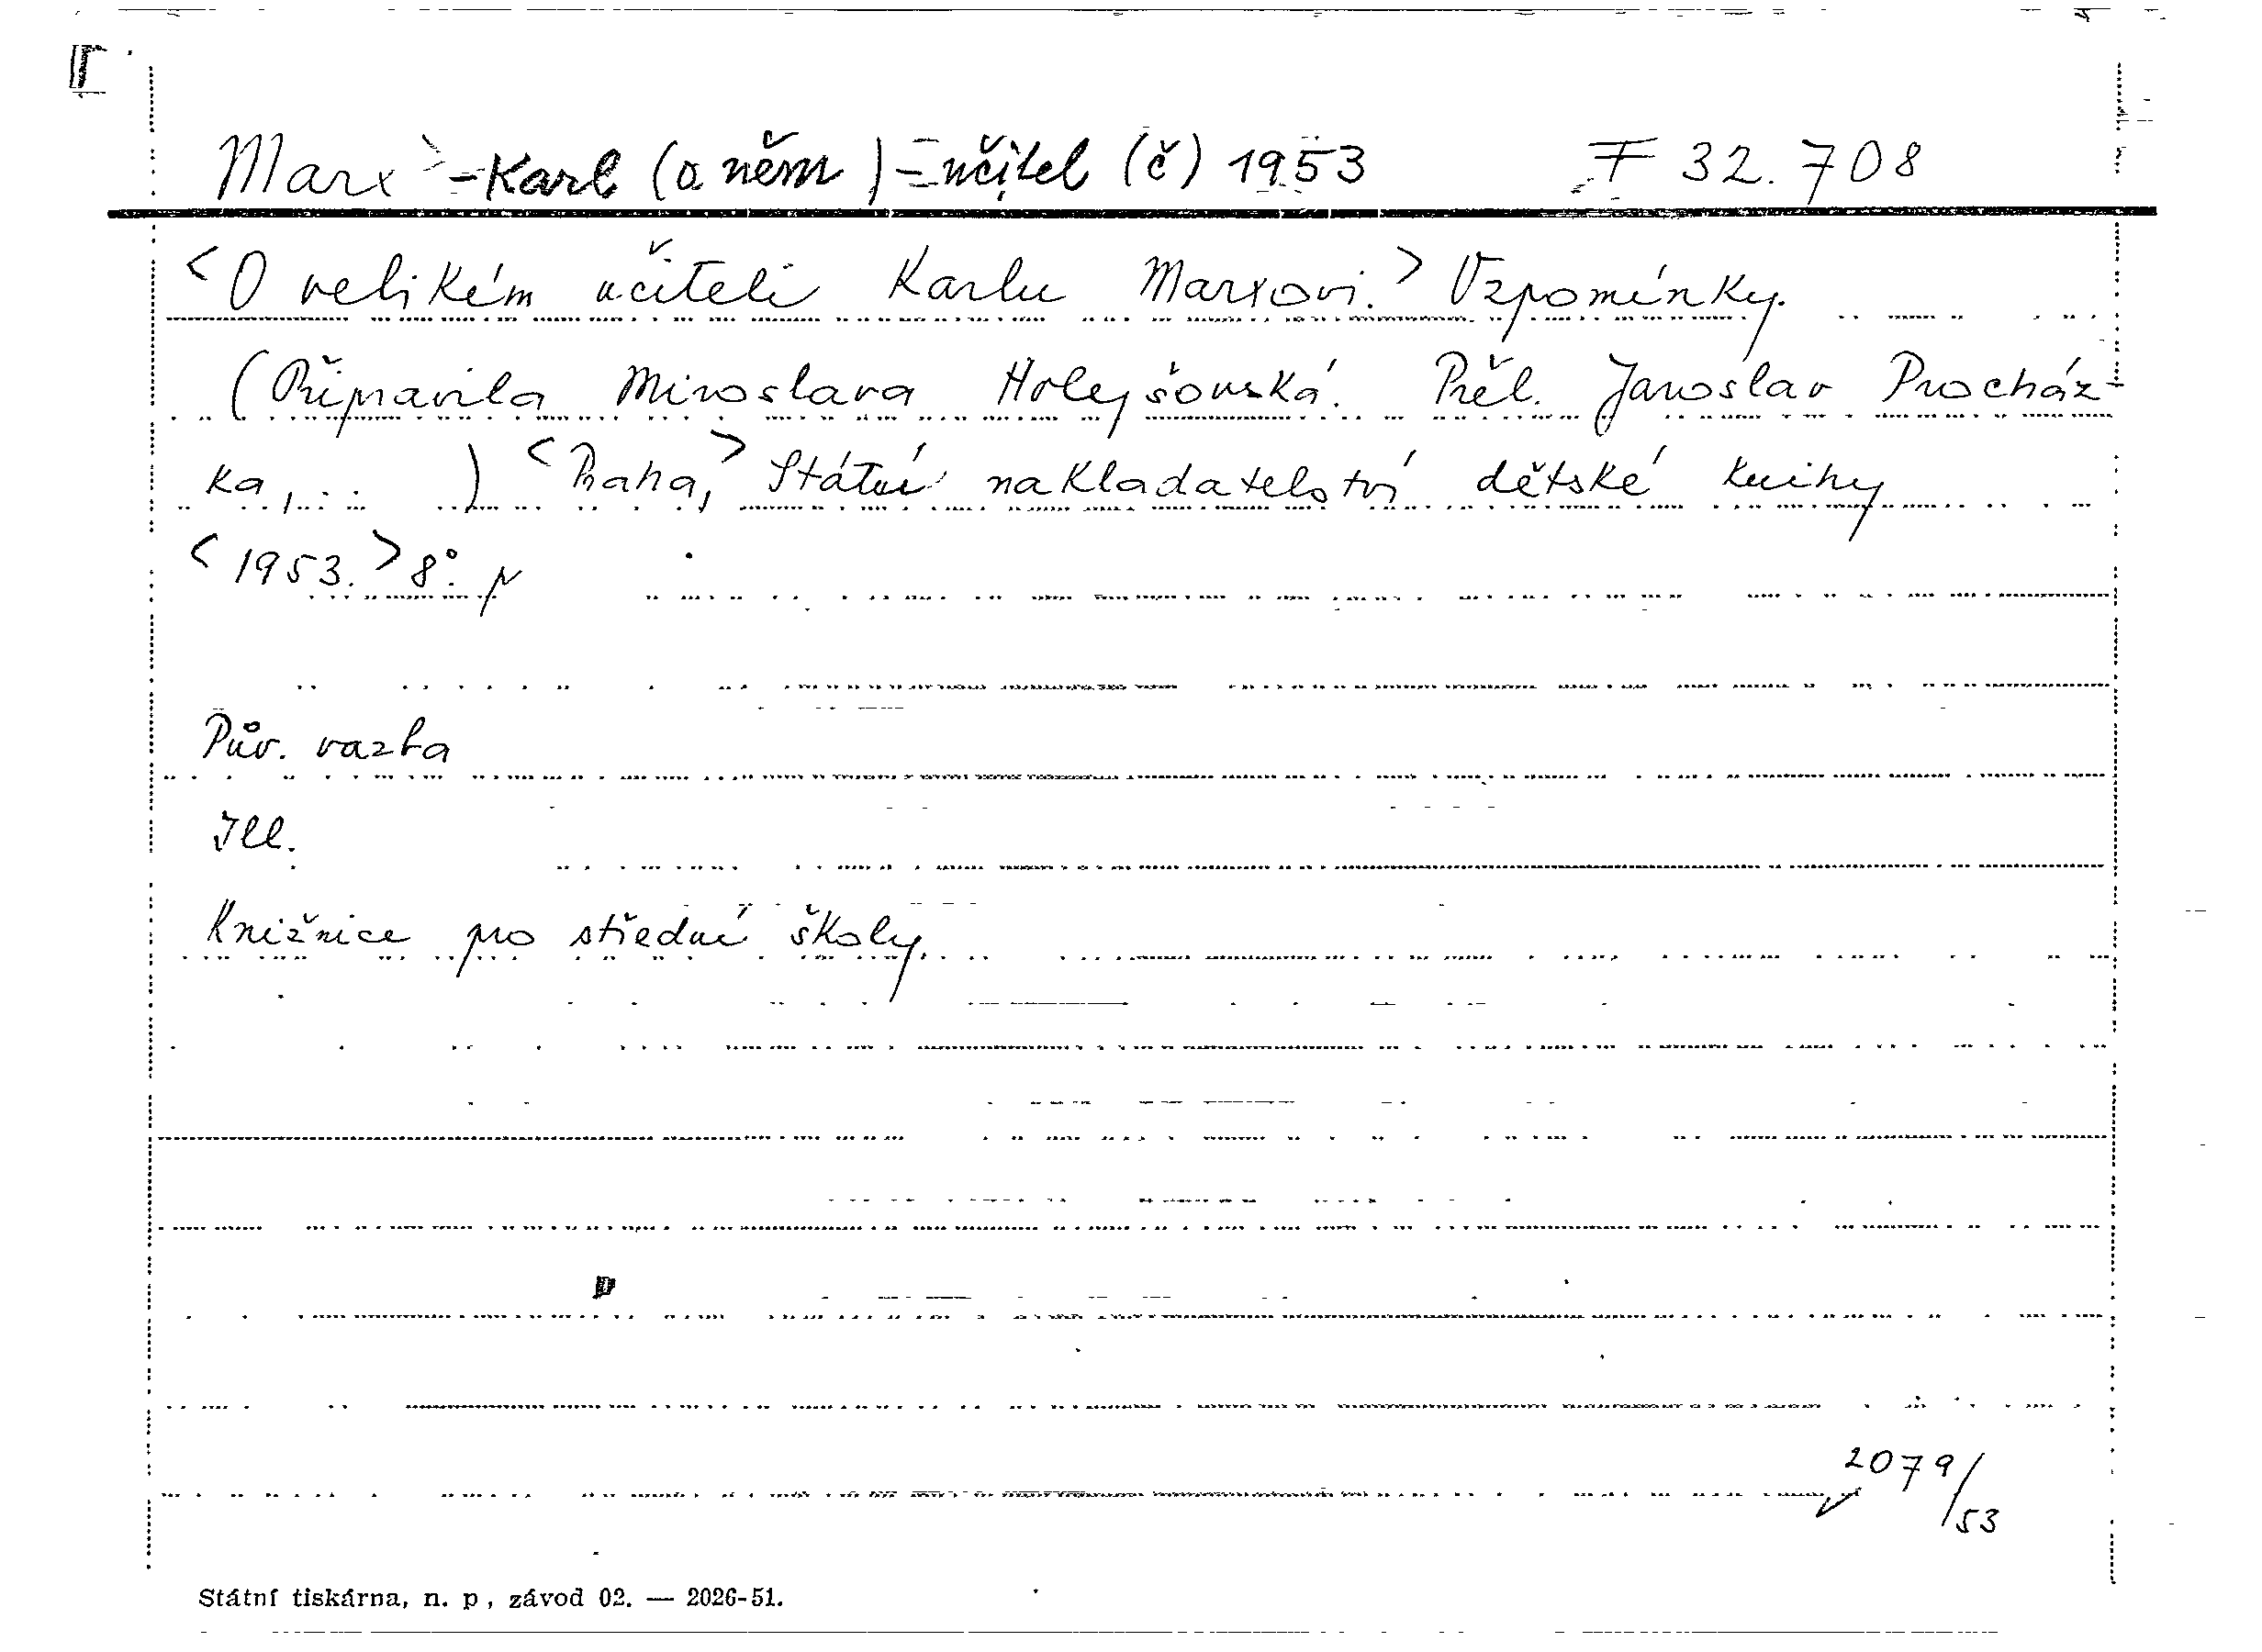 Marx - Karl (o něm) - učitel (č) 1953 F 32.708
<O velikém učiteli Karlu Marxovi.> Vzpomínky.
(Připravila Miroslava Holejšovská. Přel. Jaroslav Procház-
ka, .. ) <Praha,> Státní nakladatelství dětské knihy
<1953.> 8°. p
Pův. vazba
Ill.
Knižnice pro střední školy.
2079/53
Státní tiskárna, n. p., závod 02. — 2026-51.